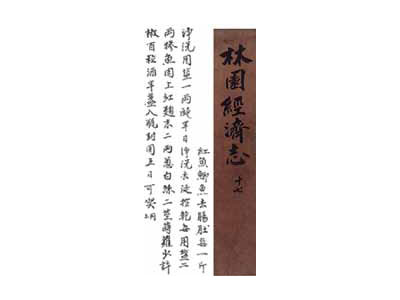 紅魚鯽魚去腸肚每一斤
淨洗用盐一兩淹半日淨洗去涎控乾每用盐二
兩摻魚周上紅麹末二兩葱白絲二莖蒔蘿少許
椒百粒酒半盞入瓶封固五日可食 上同
林園經濟志 十七